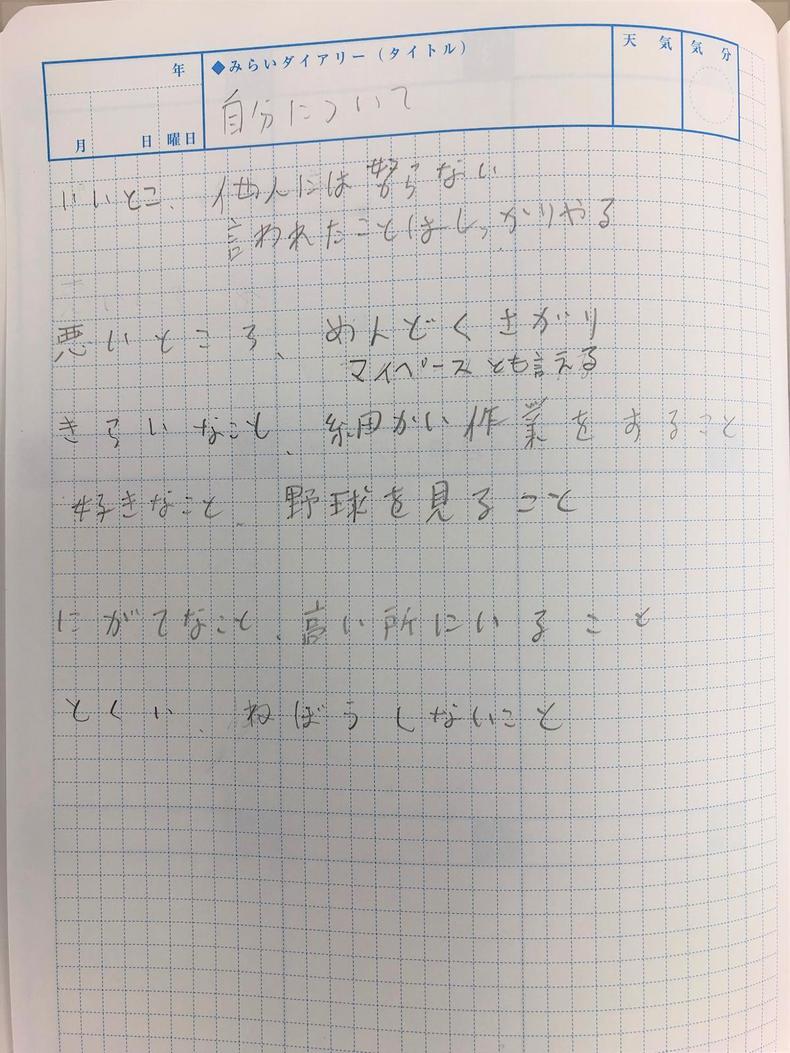 年
◆みらいダイアリー（タイトル）
天 気
気 分
月 日 曜日
自分について
いいとこ、他人には怒らない
言われたことはしっかりやる
悪いところ、めんどくさがり
マイペースとも言える
きらいなこと、細かい作業をすること
好きなこと、野球を見ること
にがてなこと、高い所にいること
とくい、ねぼうしないこと